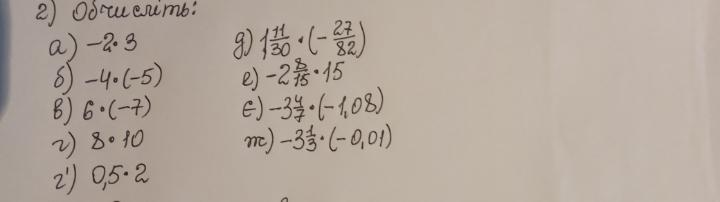 2) Обчисліть:
а) -2·3
б) -4·(-5)
в) 6·(-7)
г) 8·10
ґ) 0,5·2
д) 1 11/30 · (-27/82)
е) -2 8/15 · 15
є) -3 4/7 · (-1,08)
ж) -3 1/3 · (-0,01)